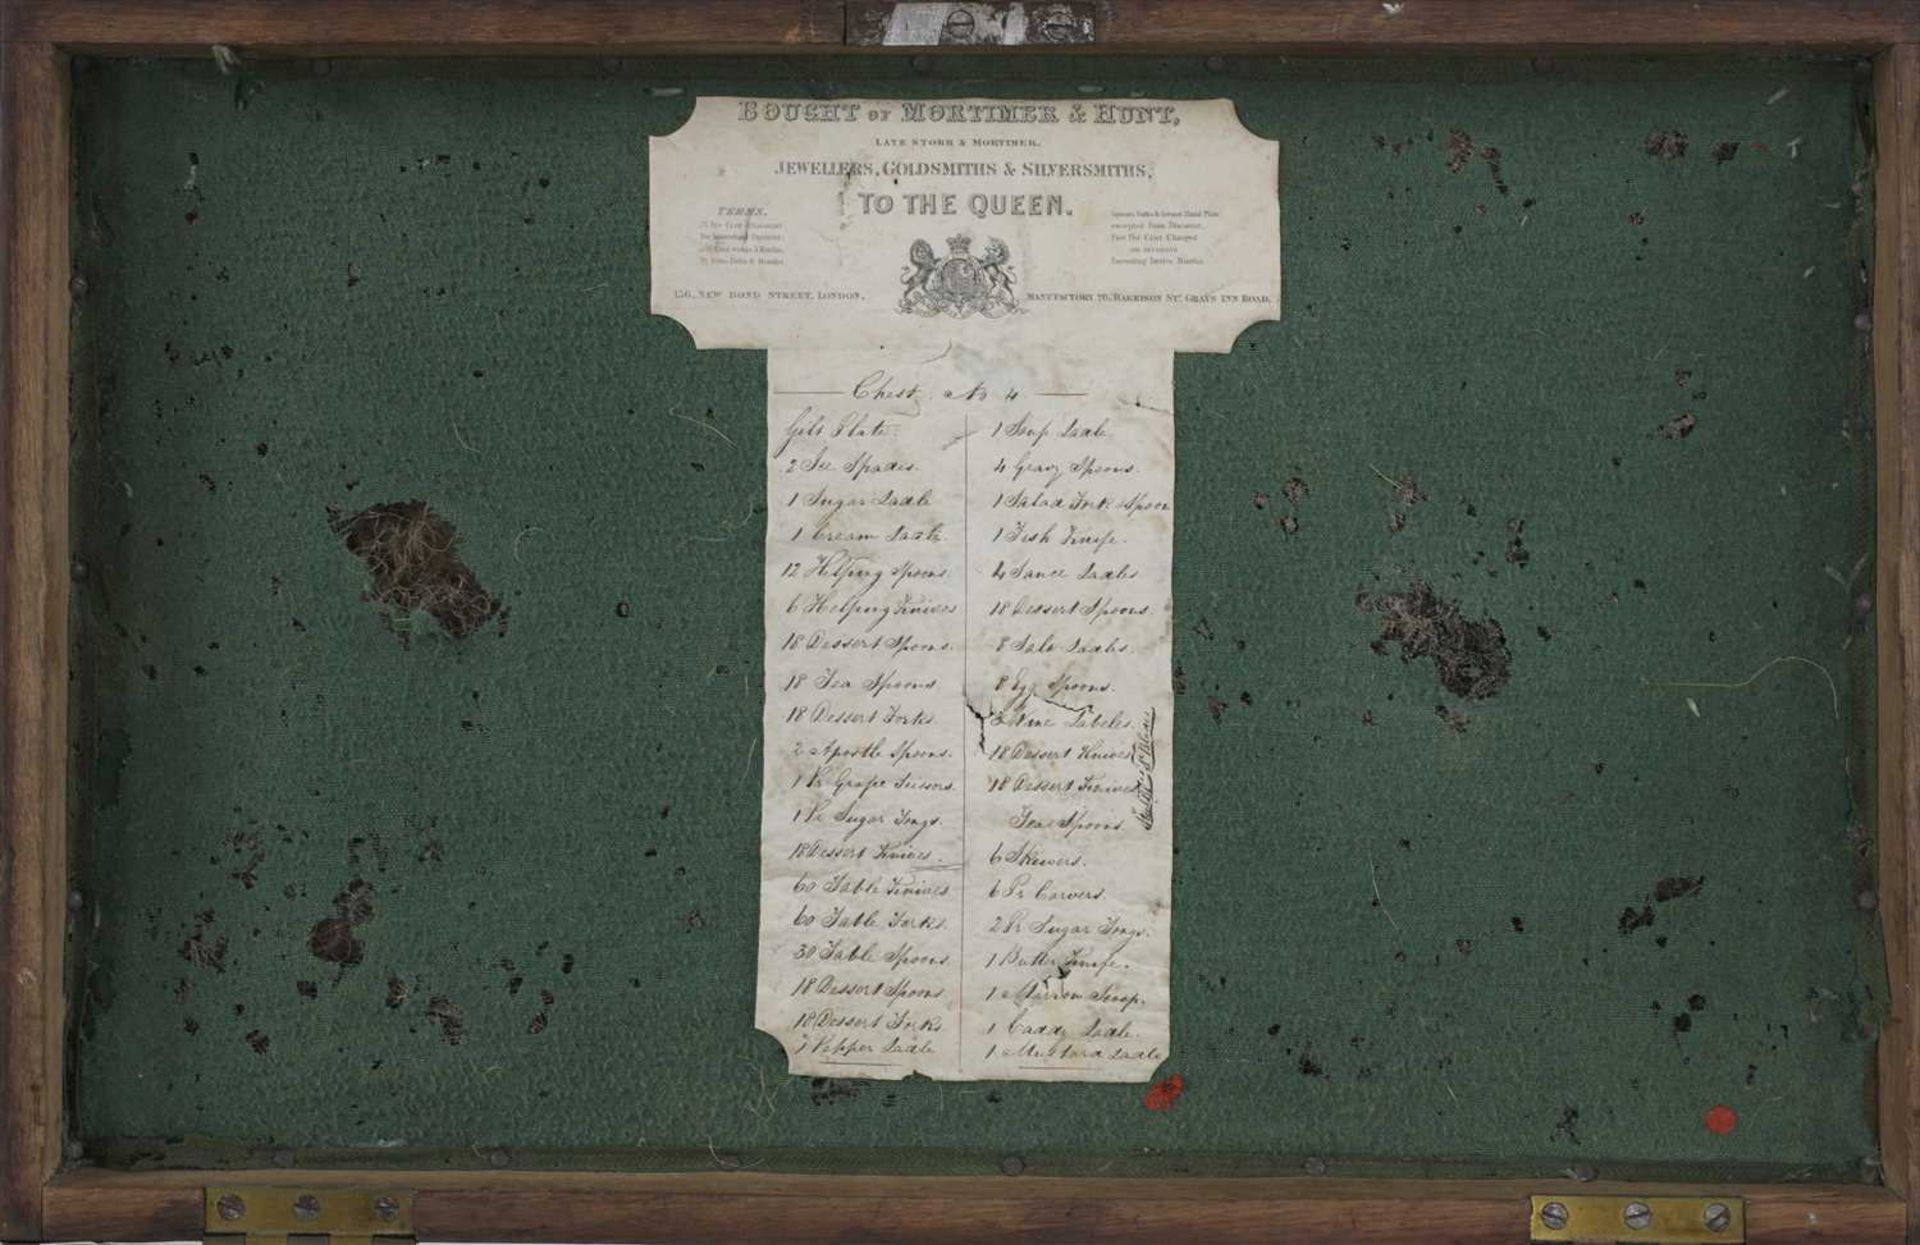 BOUGHT OF MORTIMER & HUNT,
LATE STORR & MORTIMER.
JEWELLERS, GOLDSMITHS & SILVERSMITHS,
TO THE QUEEN.
TERMS.
Exceeding Twelve Months
156, NEW BOND STREET, LONDON,
MANUFACTORY 76, HARRISON ST. GRAYS INN ROAD,
Chest No 4
Gilt Plate.
2 Ice Spades.
1 Sugar Ladle
1 Cream Ladle
12 Helping Spoons
6 Helping Knives
18 Dessert Spoons.
18 Tea Spoons
18 Dessert Forks
2 Apostle Spoons.
1 Pr Grape Scissors.
1 Pr Sugar Tongs.
18 Dessert Knives.
60 Table Knives
60 Table Forks.
30 Table Spoons
18 Dessert Spoons
18 Dessert Forks
Pepper Ladle
1 Soup Ladle
4 Gravy Spoons.
1 Salad Fork & Spoon
1 Fish Knife.
4 Sauce Ladles
18 Dessert Spoons.
8 Salt Ladles.
8 Egg Spoons.
3 Wine Labels.
18 Dessert Knives
18 Dessert Knives
Tea Spoons.
6 Skewers.
6 Pr Carvers.
2 Pr Sugar Tongs.
1 Butter Knife.
1 Marrow Scoop.
1 Caddy Ladle.
1 Mustard Ladle